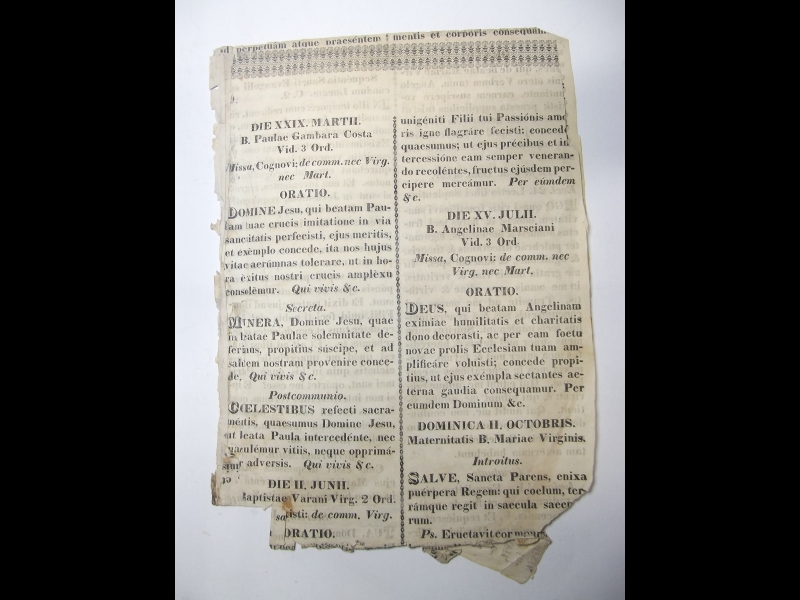 perpetuam atque praesentem
mentis et corporis consequam
DIE XXIX. MARTII.
B. Paulae Gambara Costa
Vid. 3 Ord.
Missa, Cognovi: de comm. nec Virg.
nec Mart.
ORATIO.
DOMINE Jesu, qui beatam Pau-
lam tuae crucis imitatione in via
sanctitatis perfecisti, ejus meritis,
et exémplo concede, ita nos hujus
vitae aerúmnas tolerare, ut in ho-
ra éxitus nostri crucis ampléxu
consolémur. Qui vivis &c.
Secreta.
MUNERA, Domine Jesu, quae
in beatae Paulae solemnitate de-
ferimus, propitius súscipe, et ad
salútem nostram provenire conce-
de. Qui vivis &c.
Postcommunio.
COELESTIBUS refecti sacra-
méntis, quaesumus Domine Jesu,
ut beata Paula intercedénte, nec
maculémur vitiis, neque opprimá-
mur adversis. Qui vivis &c.
DIE II. JUNII.
Baptistae Varani Virg. 2 Ord.
de comm. Virg.
ORATIO.
unigéniti Filii tui Passiónis amo
ris igne flagráre fecisti: concede
quaesumus; ut ejus précibus et in
tercessióne eam semper veneran-
do recoléntes, fructus ejúsdem per-
cipere mereámur. Per eúmdem
&c.
DIE XV. JULII.
B. Angelinae Marsciani
Vid. 3 Ord.
Missa, Cognovi: de comm. nec
Virg. nec Mart.
ORATIO.
DEUS, qui beatam Angelinam
eximiae humilitatis et charitatis
dono decorasti, ac per eam foetu
novae prolis Ecclesiam tuam am-
plificáre voluisti; concede propi-
tius, ut ejus exémpla sectantes ae-
terna gaudia consequamur. Per
eumdem Dominum &c.
DOMINICA II. OCTOBRIS.
Maternitatis B. Mariae Virginis.
Introitus.
SALVE, Sancta Parens, enixa
puérpera Regem: qui coelum, ter-
rámque regit in saecula saecu
rum.
Ps. Eructavit cor meum